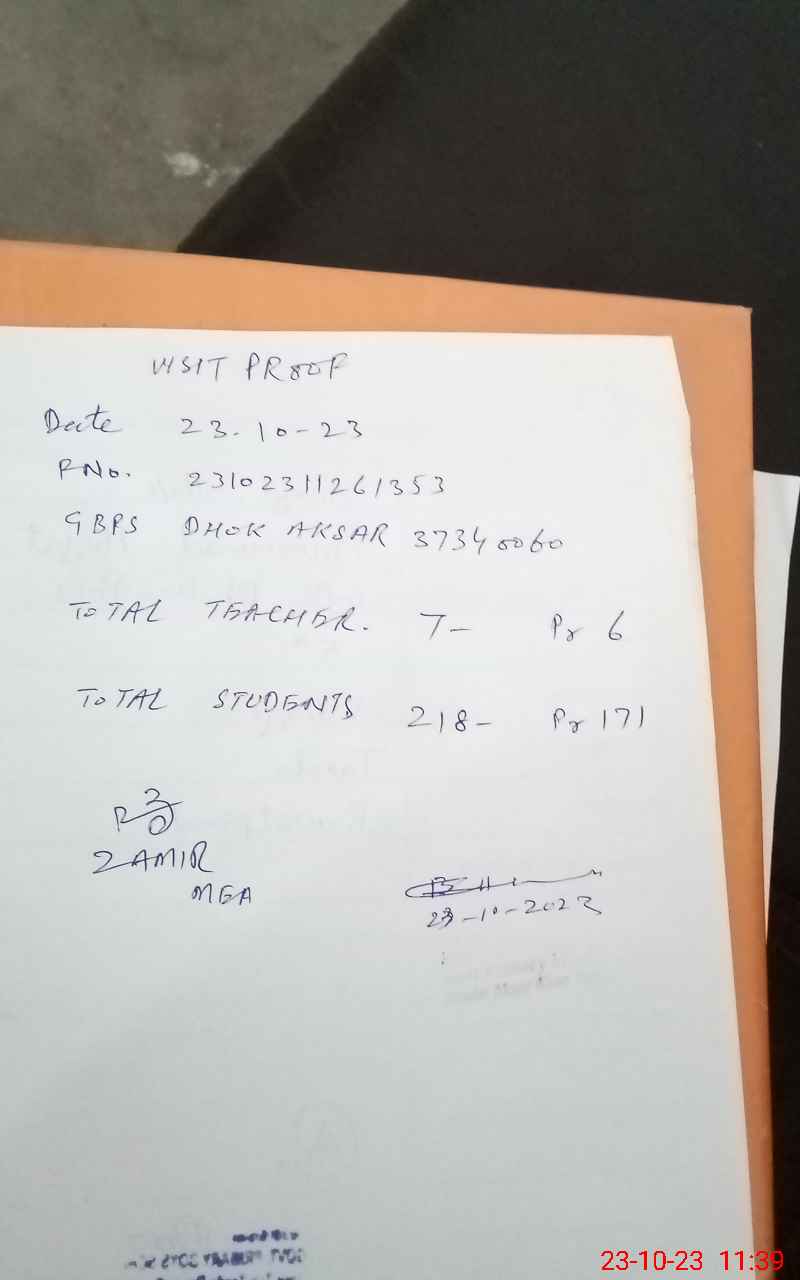 VISIT PROOF
Date 23.10-23
RNo. 23102311261353
GBPS DHOK AKSAR 37340060
TOTAL TEACHER. 7- Pr 6
TOTAL STUDENTS 218- Pr 171
ZAMIR
MEA
23-10-2023
23-10-23 11:39